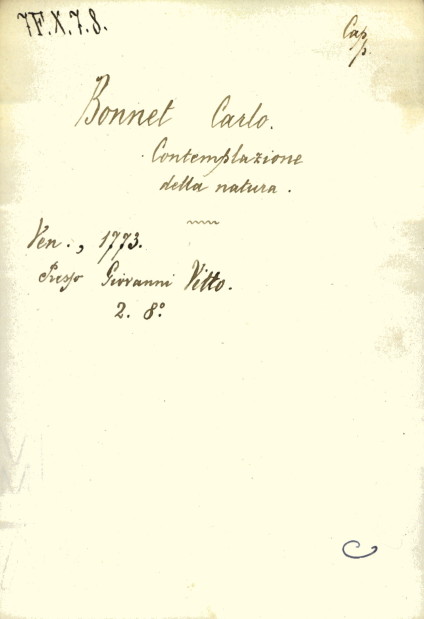 7F.X.7.8.
Capp.
Bonnet Carlo.
Contemplazione
della natura.
Ven., 1773.
Presso Giovanni Vitto.
2. 8.°